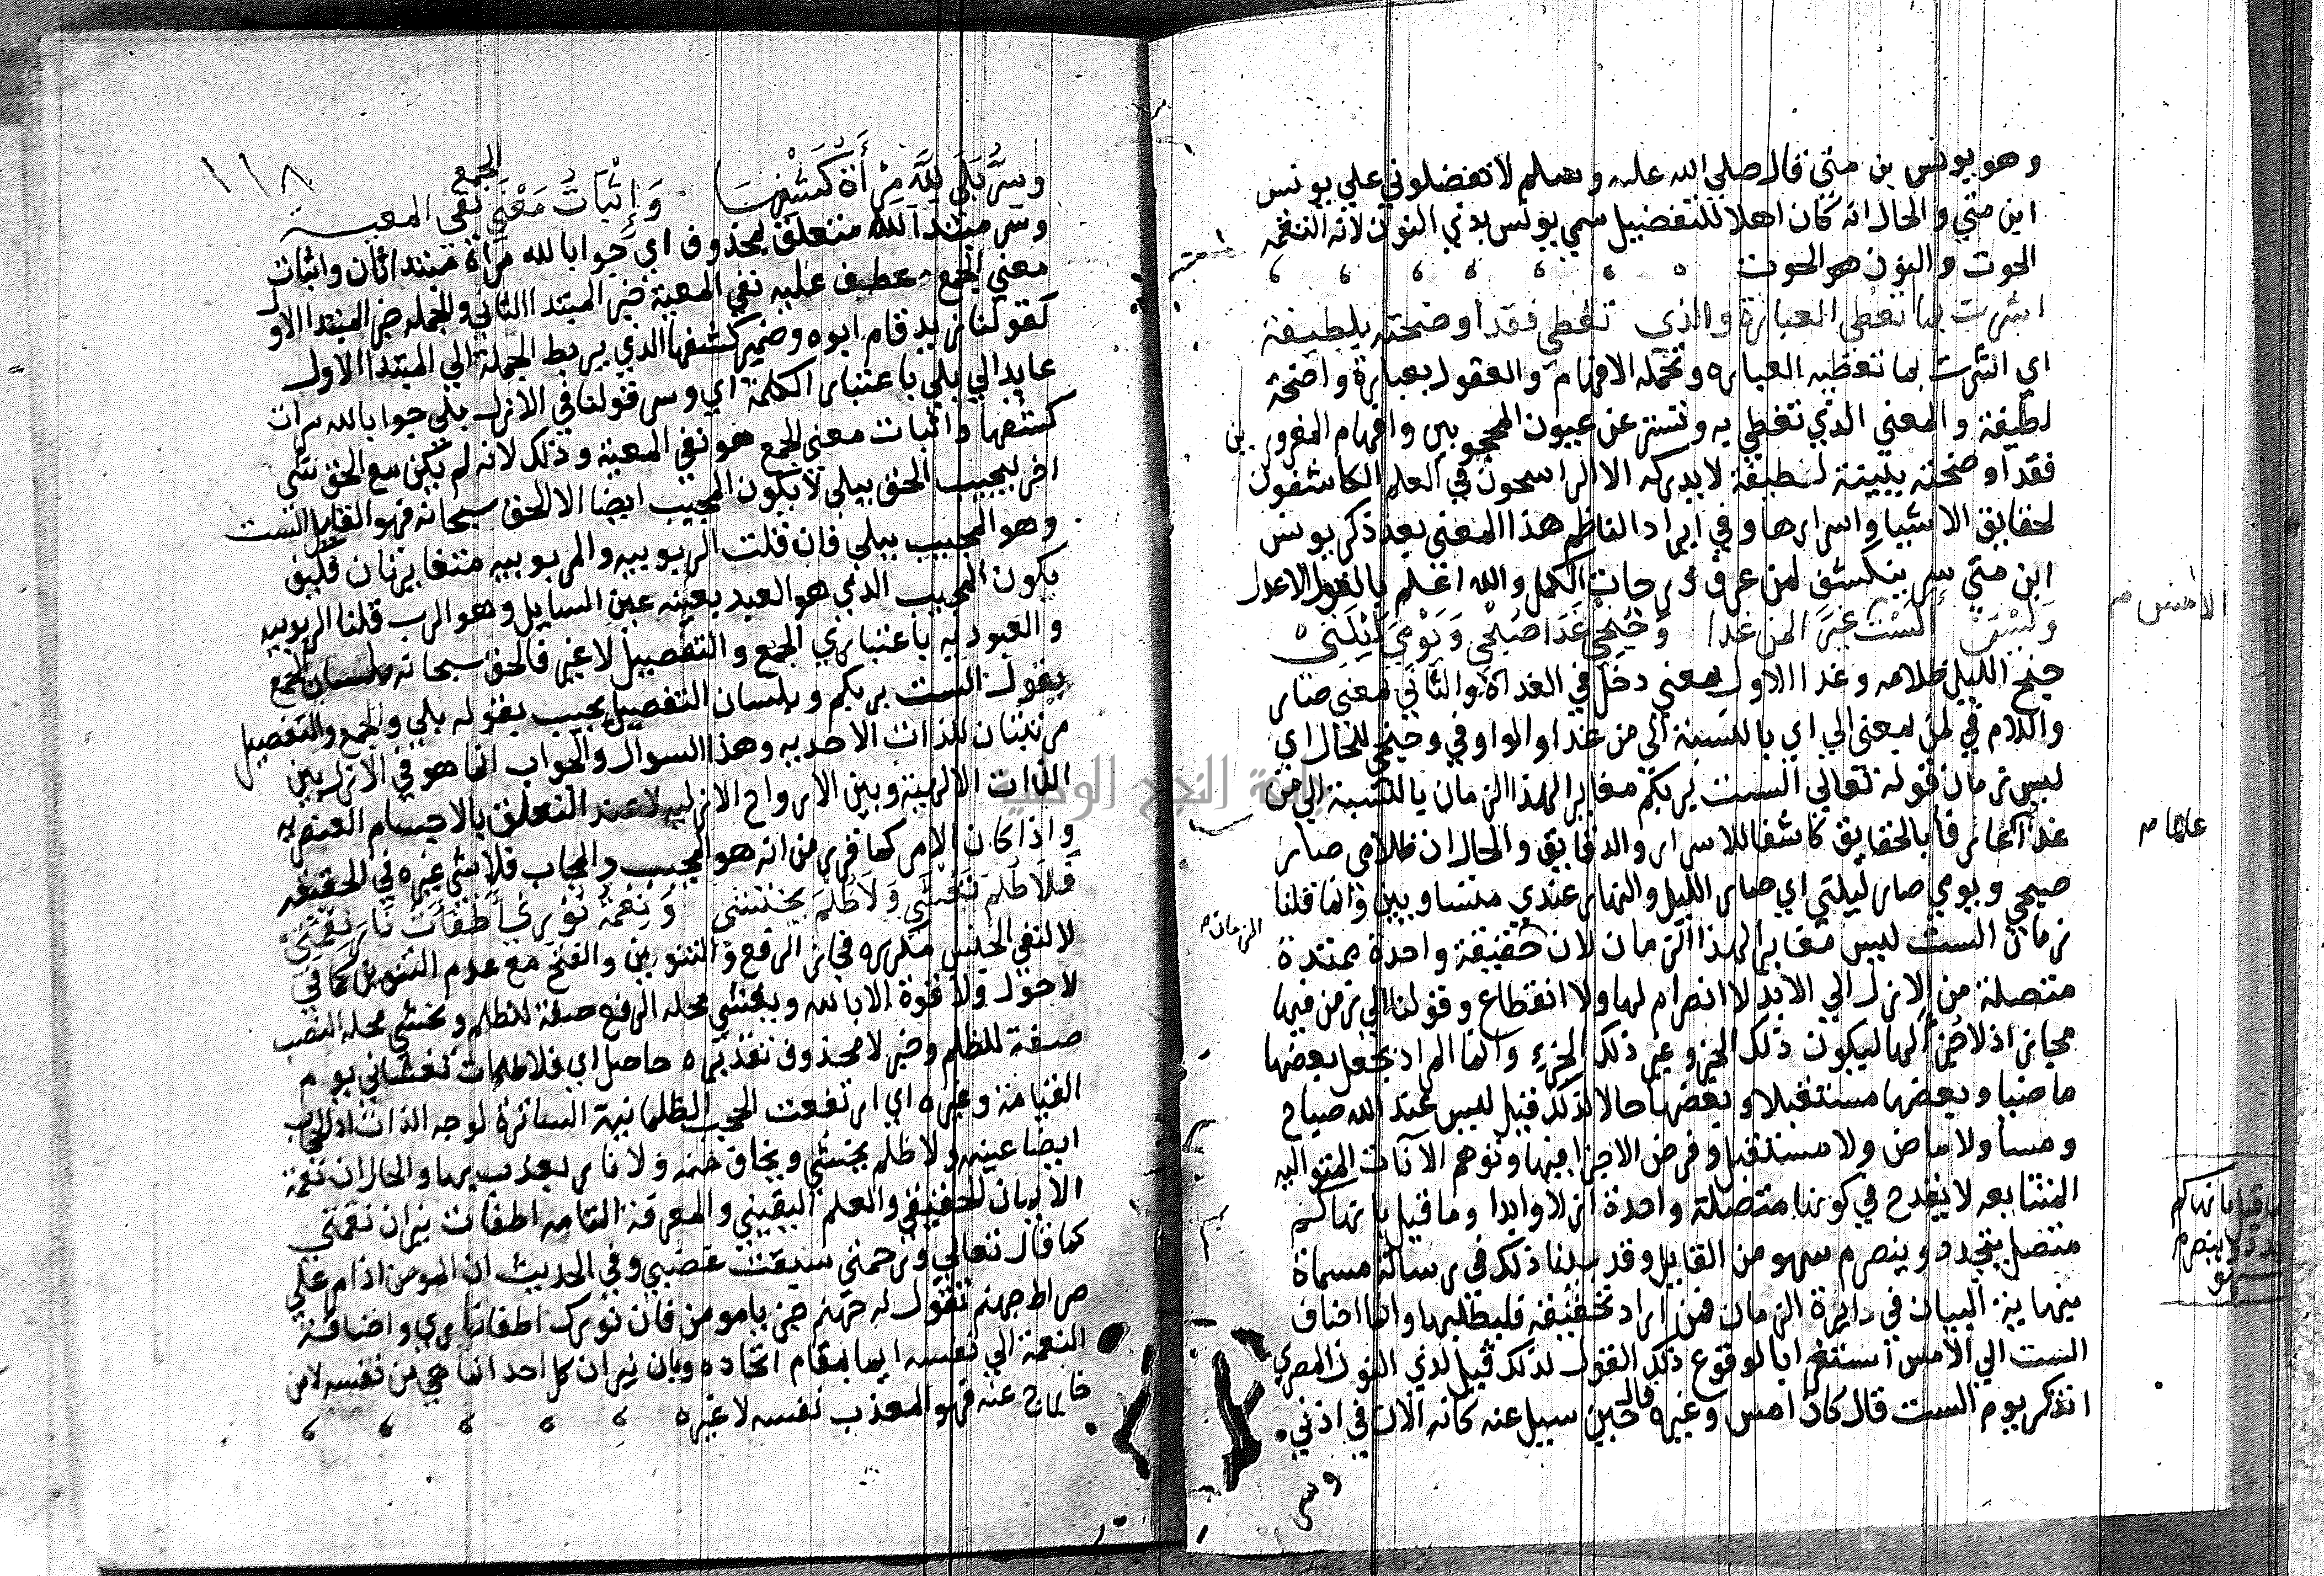 وهو يونس بن متي قال صلي الله عليه وسلم لا تفضلوني علي يونس
ابن متي والحال انه كان اهلا للتفضيل سمي يونس بذي النون لانه التقمه
الحوت والنون هو الحوت
اشرت بما تعطي العبارة والذي تغطي فقد اوضحته بلطيفة
اي اشرت بما تعطيه العباره وتحمله الافهام والعقول بعبارة واضحة
لطيفة والمعني الذي تغطي به وتستر عن عيون المحجوبين وافهام المغرورين
فقد اوضحته ببينة لطيفة لا يدركه الا الراسخون في العلم الكاشفون
لحقايق الاشيا واسرارها وفي ايراد الناظم هذا المعني بعد ذكر يونس
ابن متي سر ينكشف لمن عرف درجات الكمل والله اعلم بالقول الاعدل
وليس الست غير لمن غدا وجنحي غدا صبحي ويومي ليلتي
الامس
جنح الليل ظلامه وغدا الاول بمعني دخل في الغداة والثاني بمعني صار
واللام في لمن بمعني الي اي بالنسبة الي من غدا والواو في وجنحي للحال اي
ليس زمان قوله تعالي الست بربكم مغايرا لهذا الزمان بالنسبة الي من
غدا عارفا بالحقايق كاشفا للاسرار والدقايق والحال ان ظلامي صار
صبحي ويومي صار ليلتي اي صار الليل والنهار عندي متساويين وانما قلنا
زمان الست ليس مغايرا لهذا الزمان لان حقيقة واحدة ممتدة
الزمان
متصلة من الازل الي الابد لا انصرام لها ولا انقطاع وقولنا الي زمن فيها
مجاز اذ لا جزء لها ليكون ذلك الجزء غير ذلك الجزء وانما المراد بجعل بعضها
ماضيا وبعضها مستقبلا وبعضها حالا لذلك قيل ليس عند الله صباح
ومسا ولا ماض ولا مستقبل وفرض الاجزا فيها وتوهم الآنات المتواليه
المتتابعه لا يقدح في كونها متصلة واحدة ازلا وابدا وما قيل بانها كم
متصل يتجدد وينصرم سهو من القايل وقد بينا ذلك في رسالة مسماة
بنهاية البيان في دايرة الزمان فمن اراد تحقيقه فليطلبها وانما اضاف
الست الي الامس استقرابا لوقوع ذلك القول لذلك قيل لذي النون المصري
اتذكر يوم الست قال كان امس وغيره قال حين سيل عنه كانه الآن في اذني
وسر
١١٨
وسر بلي لله مرآة كشفها واثبات معني الجمع نفي المعية
وسر مبتدا لله متعلق بمحذوف اي جوابا لله مرآة مبتدا ثان واثبات
معني الجمع عطف عليه نفي المعية خبر المبتدا الثاني والجمله خبر المبتدا الاول
كقولنا زيد قام ابوه وضمير كشفها الذي يربط الجملة الي المبتدا الاول
عايد الي بلي باعتبار الكلمة اي وسر قولنا في الازل بلي جوابا لله مرآة
كشفها واثبات معني الجمع هو نفي المعية وذلك لانه لم يكن مع الحق شي
اخر ليجيب الحق ببلي لا يكون المجيب ايضا الا الحق سبحانه فهو القايل الست
وهو المجيب ببلي فان قلت الربوبيه والمربوبيه متغايرتان فكيف
يكون المجيب الذي هو العبد بعينه عين السايل وهو الرب قلنا الربوبيه
والعبوديه باعتباري الجمع والتفصيل لا غير فالحق سبحانه بلسان الجمع
يقول الست بربكم وبلسان التفصيل يجيب بقوله بلي والجمع والتفصيل
مرتبتان للذات الاحديه وهذا السوال والجواب انما هو في الازل بين
الذات الالهية وبين الارواح الازليه لا عند التعلق بالاجسام العنصريه
واذا كان الامر كما قرر من انه هو المجيب والمجاب فلا شي غيره في الحقيقه
فلا ظلم تغشي ولا ظلم يختشي ونعمة نوري اطفات نار نقمتي
لا لنفي الجنس مكرره فجاز الرفع والتنوين والفتح مع عدم التنوين كما في
لا حول ولا قوة الا بالله ويختشي محله الرفع صفة للظلم وتغشي محله النصب
صفة للظلم وخبر لا محذوف تقديره حاصل اي فلا ظلمات تغشاني يوم
القيامة وغيره اي ارتفعت الحجب الظلمانية الساترة لوجه الذات اذ الحجب
ايضا عينه ولا ظلم يختشي ويخاف منه ولا نار يعذب بها والحال ان نعمة
الايمان الحقيقي والعلم اليقيني والمعرفة التامه اطفات نيران نقمتي
كما قال تعالي ورحمتي سبقت غضبي وفي الحديث ان المومن اذا مر علي
صراط جهنم تقول له جهنم جز يا مومن فان نورك اطفا ناري واضافة
النقمة الي نفسه ايما بمقام اتحاده وبان نيران كل احد انما هي من نفسه لا من
خارج عنه فهو المعذب نفسه لا غيره